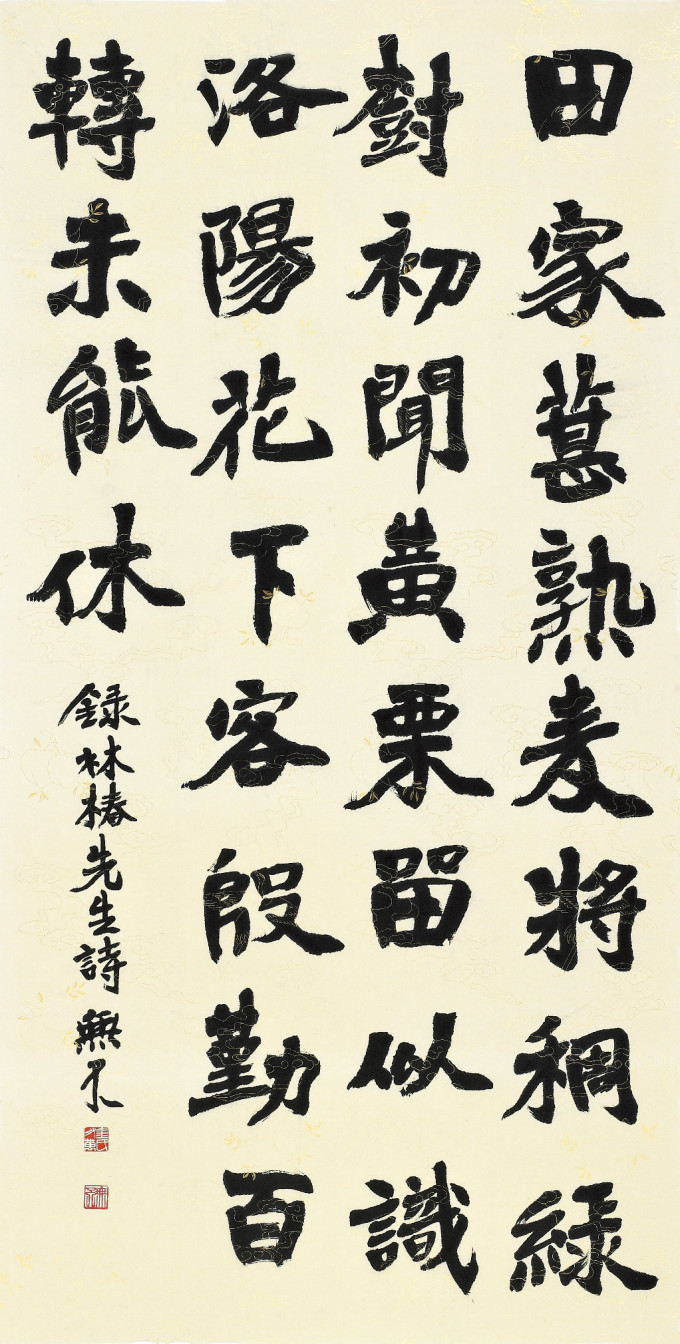 田家葚熟麦將稠緑
樹初聞黃栗留似識
洛陽花下客殷勤百
轉未能休
録林椿先生詩 無